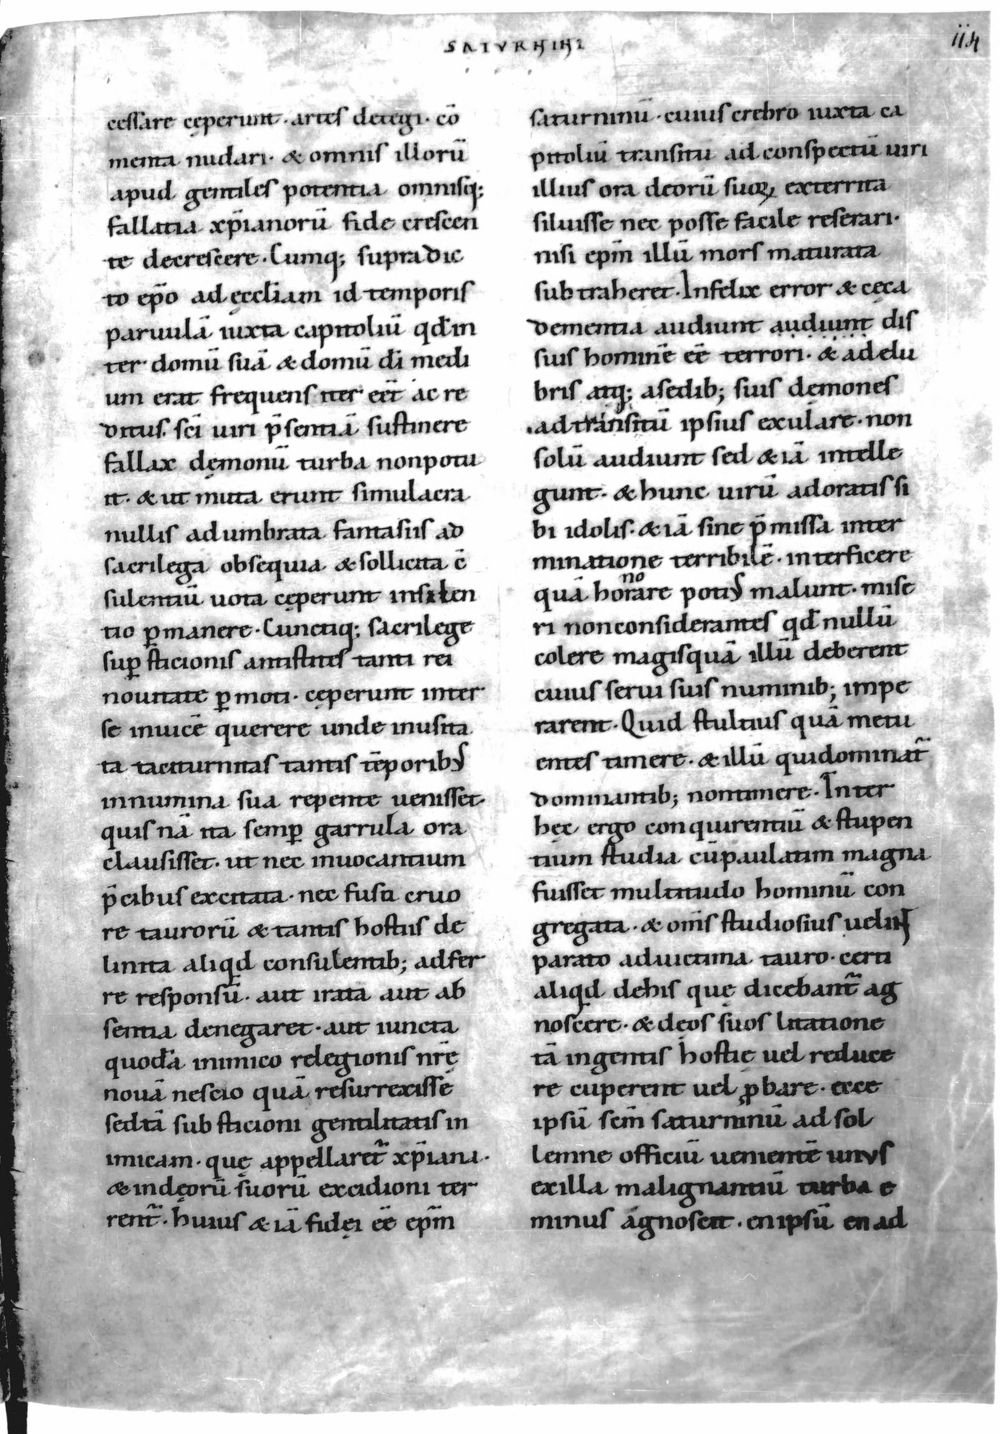 SATURNINI
114
cessare cęperunt · artes detegi · cō
menta nudari · & omnis illorū
apud gentiles potentia omnisq;
fallatia xp̄ianorū fide crescen
te decrescere · Cumq; supradic
to ep̄o ad ęccliam id temporis
paruulā iuxta capitoliū qđ in
ter domū suā & domū dī medi
um erat frequens iter eēt ac re
ditus · sc̄i uiri p̄sentiā sustinere
fallax dęmonū turba non potu
it · & ut muta erunt simulacra
nullis adumbrata fantasiis ad
sacrilega obsequia & sollicita c̄
sulentiū uota cęperunt in silen
tio ꝑmanere · Cunctiq; sacrilege
suꝑsticionis antistites tanti rei
nouitate ꝑmoti · cęperunt inter
se inuicē querere unde inusita
ta taciturnitas tantis tēporibꝰ
in numina sua repente uenisset ·
quis nā ita semꝑ garrula ora
clausisset · ut nec inuocantium
p̄cibus excitata · nec fusa cruo
re taurorū & tantis hostiis de
linita aliqđ consulentib; adfer
re responsū · aut irata aut ab
sentia denegaret · aut iuncta
quodā inimico relegionis nr̄ę
nouā nescio quā resurrexisse
sectā substicioni gentilitatis in
imicam · quę appellaret̄ xp̄iana ·
& in deorū suorū excidioni ter
rent̄ · huius & iā fidei eē ep̄m
saturninū · cuius crebro iuxta ca
pitoliū transitu ad conspectū uiri
illius ora deorū suoꝝ exterrita
siluisse nec posse facile reserari ·
nisi ep̄m illū mors maturata
subtraheret · Infelix error & cęca
dementia audiunt audiunt dis
suis hominē eē terrori · & a delu
bris atq; a sedib; suis dęmones
ad transitū ipsius exulare · non
solū audiunt sed & iā intelle
gunt · & hunc uirū adoratis si
bi idolis · & iā sine p̄missa inter
minatione terribilē · interficere
quā honorare potiꝰ malunt · mise
ri non considerantes qđ nullū
colere magis quā illū deberent
cuius serui suis numinib; impe
rarent · Quid stultius quā metu
entes timere · & illū qui dominat̄
dominantib; non timere · Inter
hęc ergo conquirentiū & stupen
tium studia cū paulatim magna
fuisset multitudo hominū con
gregata · & om̄s studiosius uelint
parato ad uictima tauro · certi
aliqđ de his quę dicebant̄ ag
noscere · & deos suos litatione
tā ingentis hostię uel reduce
re cuperent uel ꝓbare · ecce
ipsū sc̄m saturninū ad sol
lemne officiū uenientē unus
ex illa malignantiū turba e
minus agnoscit · en ipsū en ad